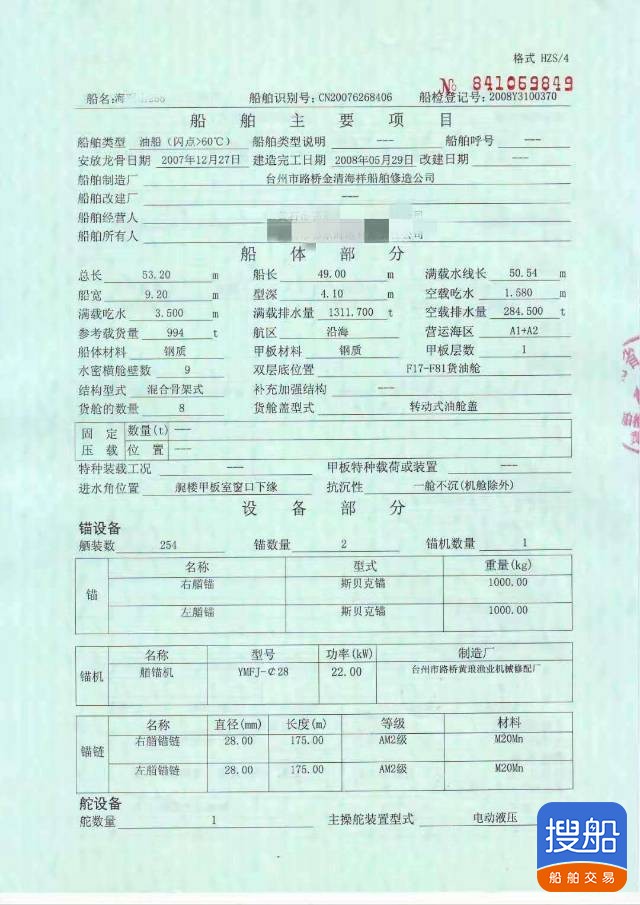 格式 HZS/4
№ 841059849
船名:海 船舶识别号:CN20076268406 船检登记号:2008Y3100370
船 舶 主 要 项 目
船舶类型 油船(闪点>60℃) 船舶类型说明 --- 船舶呼号 ---
安放龙骨日期 2007年12月27日 建造完工日期 2008年05月29日 改建日期 ---
船舶制造厂 台州市路桥金清海祥船舶修造公司
船舶改建厂 ---
船舶经营人 公司
船舶所有人 公司
船 体 部 分
总长 53.20 m 船长 49.00 m 满载水线长 50.54 m
船宽 9.20 m 型深 4.10 m 空载吃水 1.580 m
满载吃水 3.500 m 满载排水量 1311.700 t 空载排水量 284.500 t
参考载货量 994 t 航区 沿海 营运海区 A1+A2
船体材料 钢质 甲板材料 钢质 甲板层数 1
水密横舱壁数 9 双层底位置 F17-F81货油舱
结构型式 混合骨架式 补充加强结构 ---
货舱的数量 8 货舱盖型式 转动式油舱盖
固 定 数量(t) ---
压 载 位 置 ---
特种装载工况 --- 甲板特种载荷或装置 ---
进水角位置 艉楼甲板室窗口下缘 抗沉性 一舱不沉(机舱除外)
设 备 部 分
锚设备
舾装数 254 锚数量 2 锚机数量 1
名称 型式 重量(kg)
锚 右艏锚 斯贝克锚 1000.00
左艏锚 斯贝克锚 1000.00
名称 型号 功率(kW) 制造厂
锚机 艏锚机 YMFJ-¢28 22.00 台州市路桥黄琅渔业机械修配厂
名称 直径(mm) 长度(m) 等级 材料
锚链 右艏锚链 28.00 175.00 AM2级 M20Mn
左艏锚链 28.00 175.00 AM2级 M20Mn
舵设备
舵数量 1 主操舵装置型式 电动液压
搜船
船舶交易